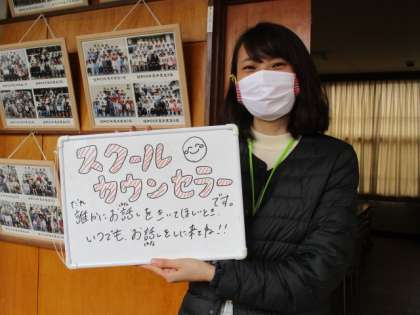 スクール
カウンセラー
です。
だれ はなし
誰かにお話しをきいてほしいとき、
いつでも、お話しをしに来てね!!
はなし